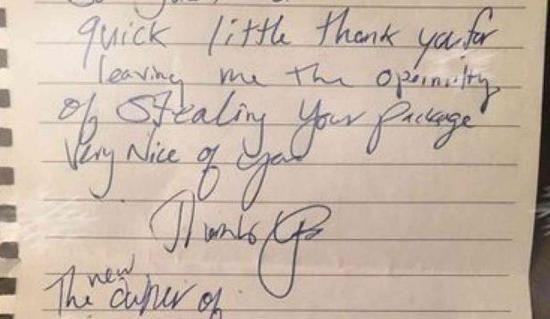 quick little thank you for
leaving me the
of Stealing your package
Very Nice of you
Thanks
new
The owner of